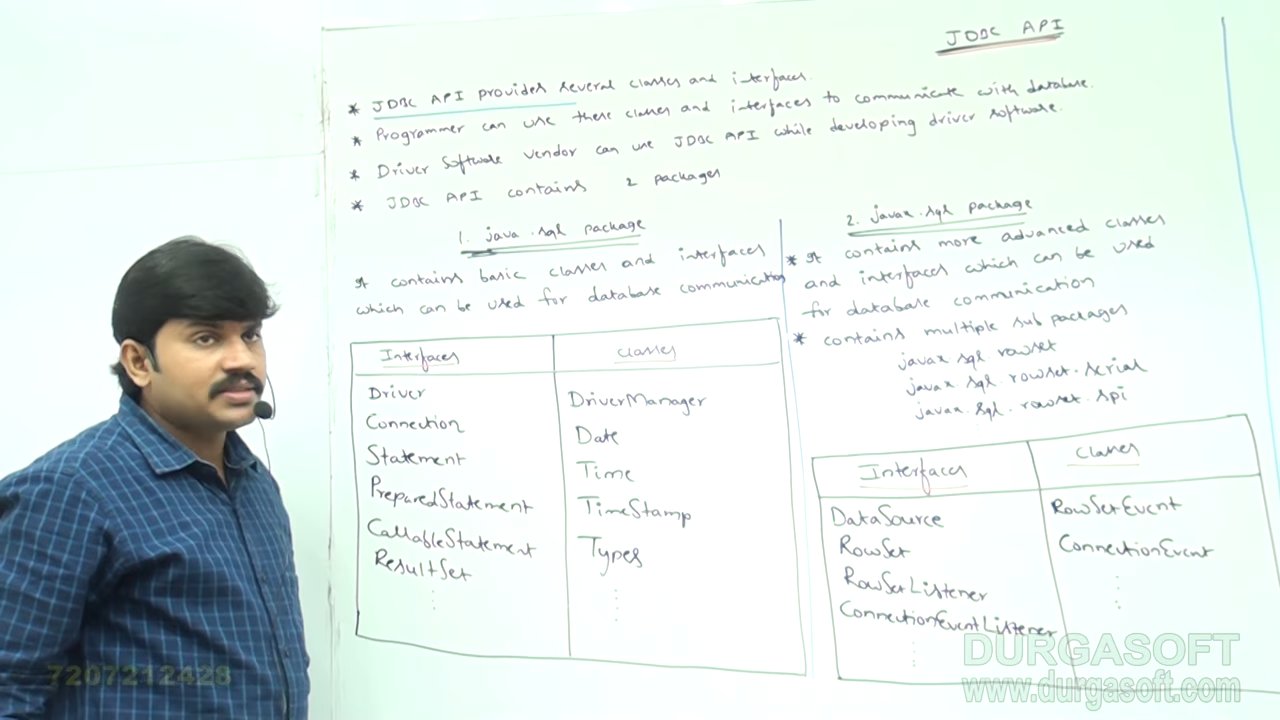 JDBC API
* JDBC API provides several classes and interfaces.
* Programmer can use these classes and interfaces to communicate with database.
* Driver Software vendor can use JDBC API while developing driver software.
* JDBC API contains 2 packages
1. java.sql package
It contains basic classes and interfaces
which can be used for database communication
Interfaces
Driver
Connection
Statement
PreparedStatement
CallableStatement
ResultSet
classes
DriverManager
Date
Time
TimeStamp
Types
2. javax.sql package
* It contains more advanced classes
and interfaces which can be used
for database communication
* contains multiple sub packages
javax.sql.rowset
javax.sql.rowset.serial
javax.sql.rowset.spi
Interfaces
DataSource
RowSet
RowSetListener
ConnectionEventListener
classes
RowSetEvent
ConnectionEvent
DURGASOFT
www.durgasoft.com
7207212428